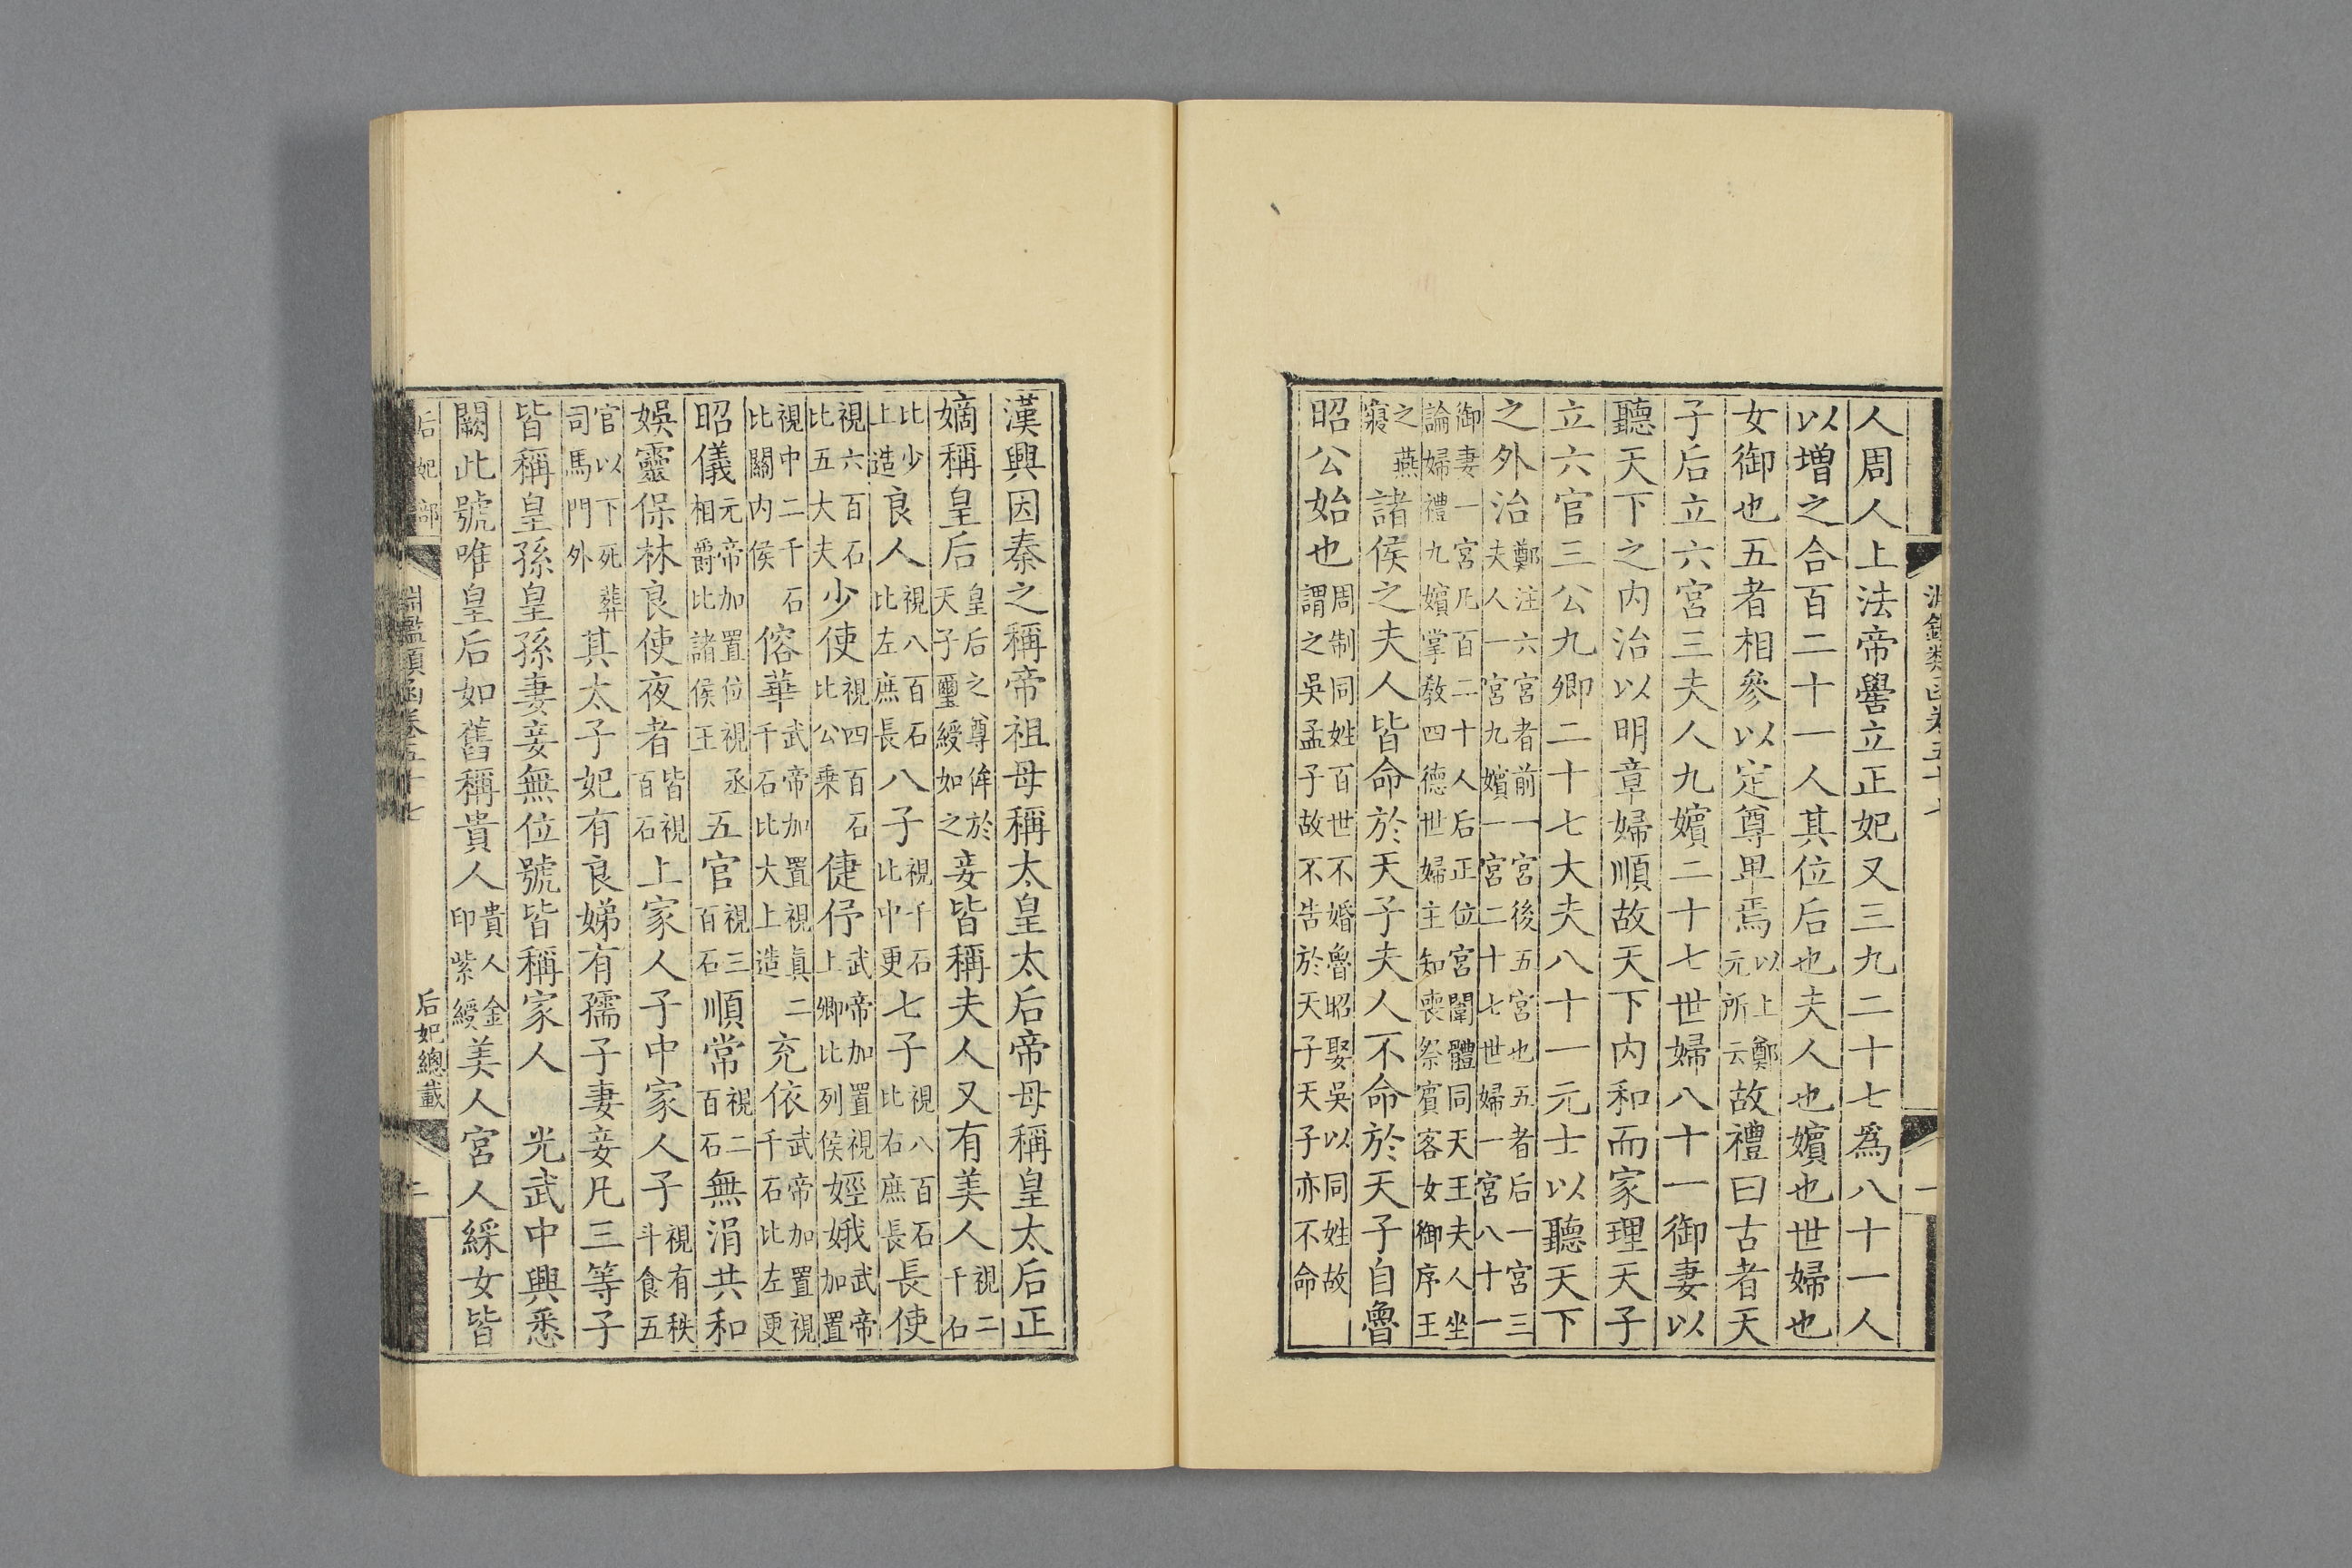 人周人上法帝嚳立正妃又三九二十七爲八十一人
以增之合百二十一人其位后也夫人也嬪也世婦也
女御也五者相參以定尊卑焉以上鄭元所云故禮曰古者天
子后立六宮三夫人九嬪二十七世婦八十一御妻以
聽天下之内治以明章婦順故天下内和而家理天子
立六官三公九卿二十七大夫八十一元士以聽天下
之外治鄭注六宮者前一宮後五宮也五者后一宮三夫人一宮九嬪一宮二十七世婦一宮八十一
御妻一宮凡百二十人后正位宮闈體同天王夫人坐論婦禮九嬪掌教四德世婦主知喪祭賓客女御序王
之燕寢諸侯之夫人皆命於天子夫人不命於天子自魯
昭公始也周制同姓百世不婚魯昭娶吳以同姓故謂之吳孟子故不告於天子天子亦不命
漢興因秦之稱帝祖母稱太皇太后帝母稱皇太后正
嫡稱皇后皇后之尊侔於天子璽綬如之妾皆稱夫人又有美人視二千石
比少上造良人視八百石比左庶長八子視千石比中更七子視八百石比右庶長長使
視六百石比五大夫少使視四百石比公乘倢伃武帝加置視上卿比列侯娙娥武帝加置
視中二千石比關内侯傛華武帝加置視真二千石比大上造充依武帝加置視千石比左更
昭儀元帝加置位視丞相爵比諸侯王五官視三百石順常視二百石無涓共和
娛靈保林良使夜者皆視百石上家人子中家人子視有秩斗食五
官以下死葬司馬門外其太子妃有良娣有孺子妻妾凡三等子
皆稱皇孫皇孫妻妾無位號皆稱家人 光武中興悉
闕此號唯皇后如舊稱貴人貴人金印紫綬美人宮人綵女皆
后妃部 淵鑑類函卷五十七 后妃總載 二